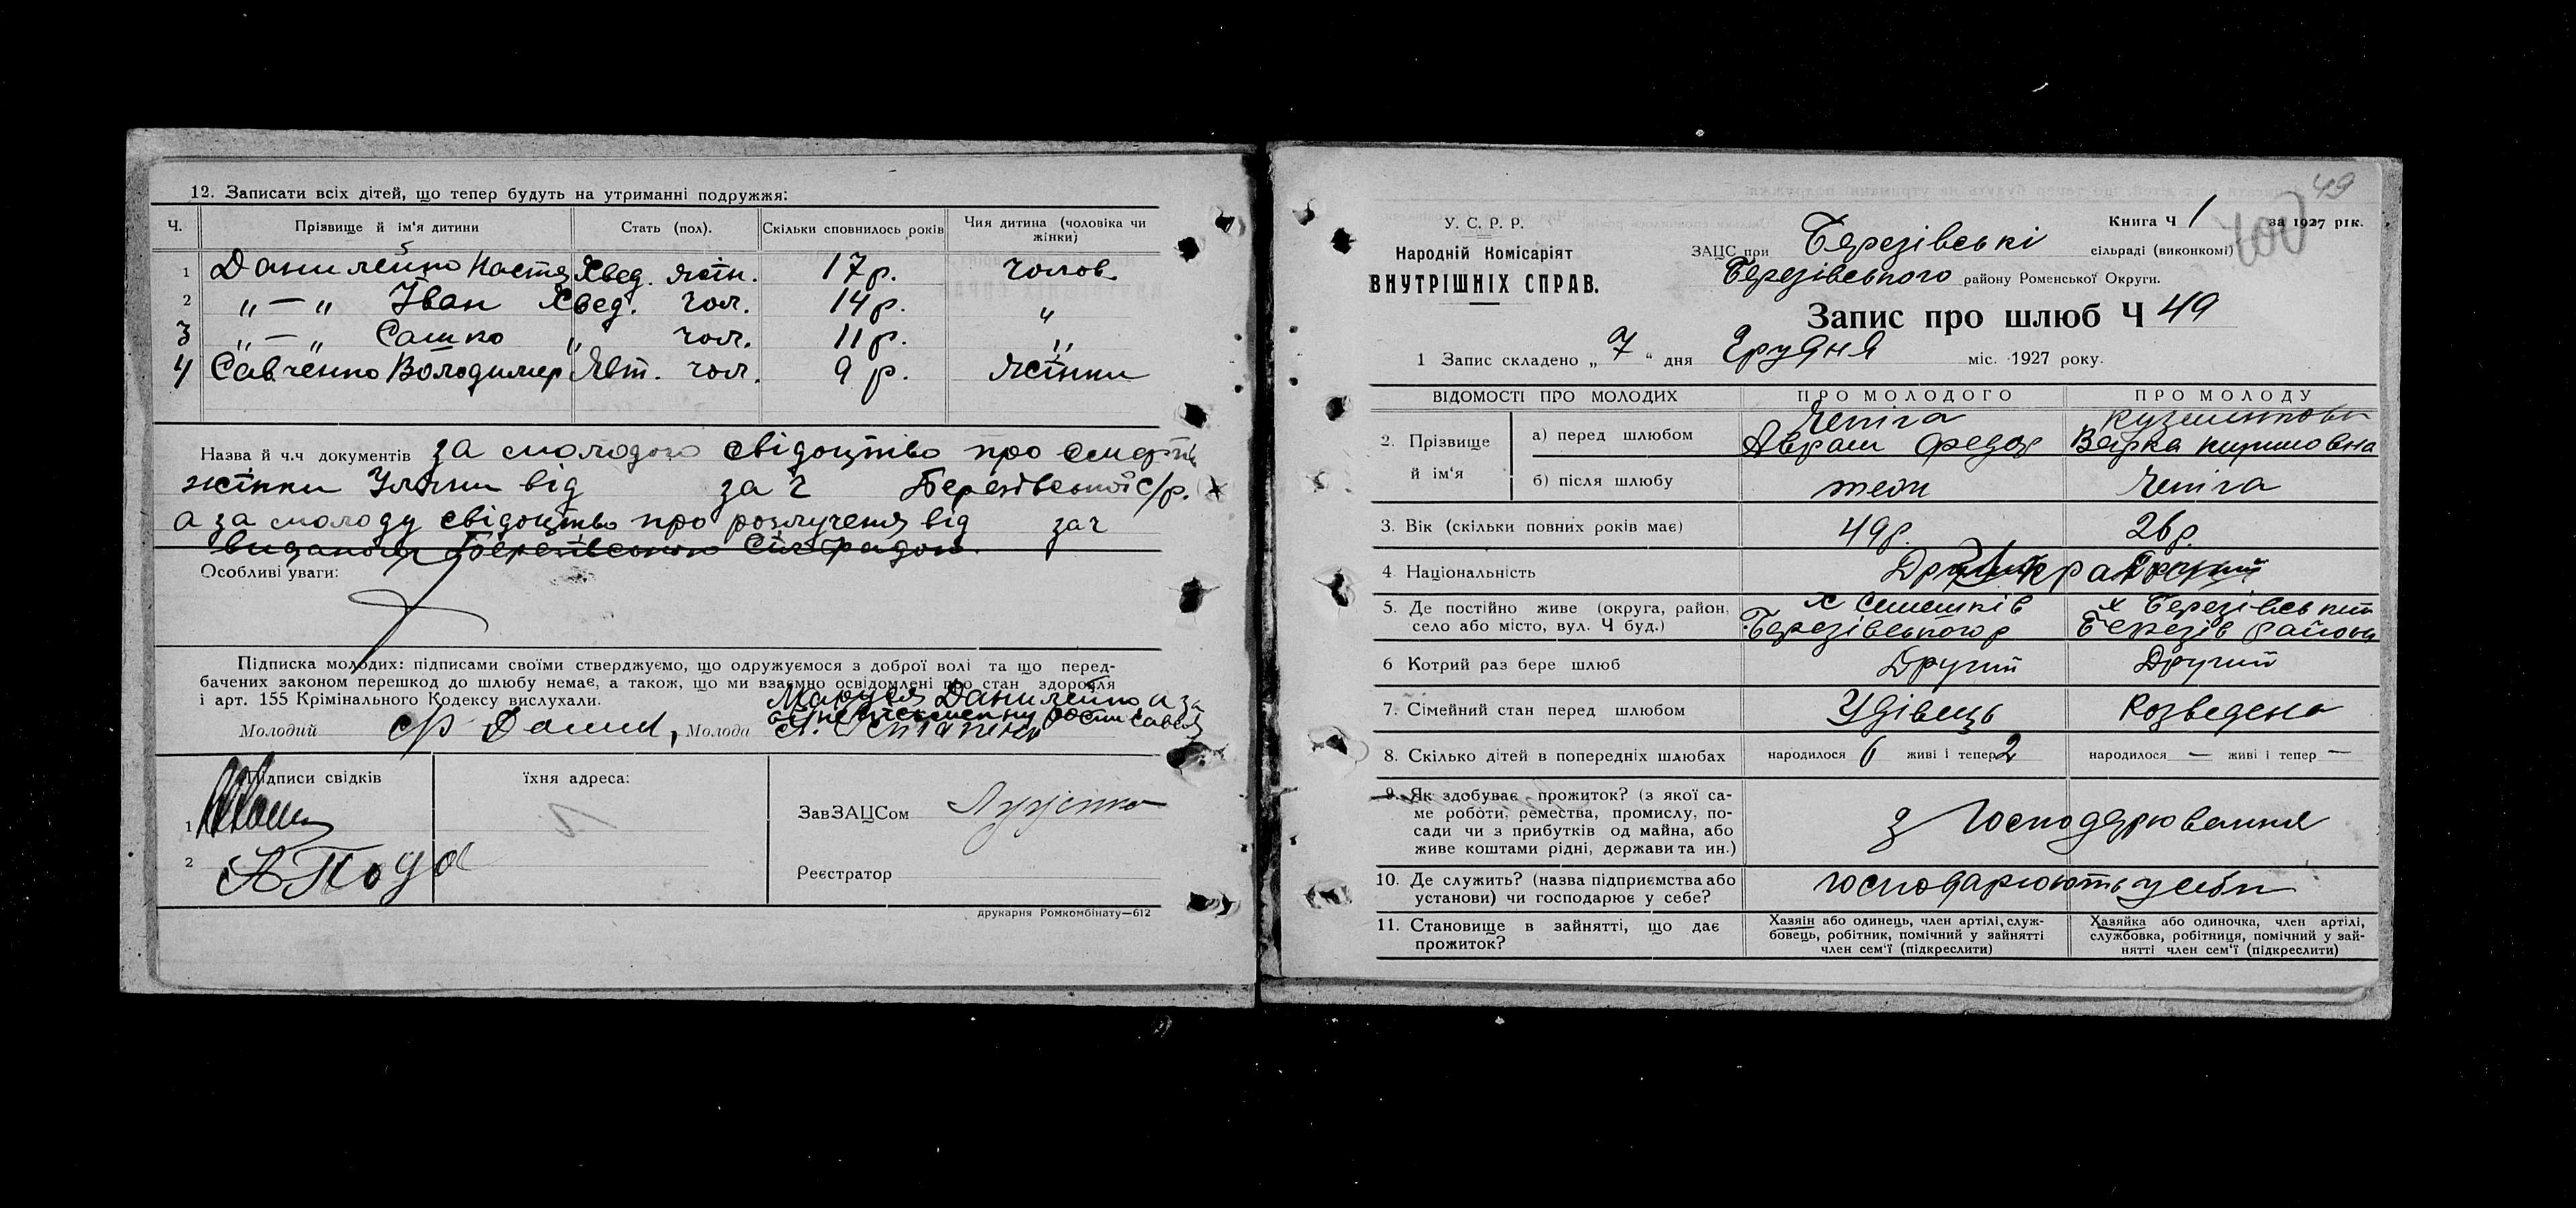 12. Записати всіх дітей, що тепер будуть на утриманні подружжя:
Ч. Прізвище й ім'я дитини Стать (пол). Скільки сповнилось років Чия дитина (чоловіка чи жінки)
1 Данилейко Настя Хвед. жін. 17 р. чолов.
2 „ — „ Іван Хвед. чол. 14 р. „
3 „ — „ Сашко „ чол. 11 р. „
4 Савченко Володимир Явт. чол. 9 р. жінки
Назва й ч.ч документів за молодого свідоцтво про смерть
жінки Уляни від за ч Березівської с/р.
а за молоду свідоцтво про розлучення від за ч
видання Березівською Сільрадою
Особливі уваги:
Підписка молодих: підписами своїми стверджуємо, що одружуємося з доброї волі та що перед-
бачених законом перешкод до шлюбу немає, а також, що ми взаємно освідомлені про стан здоровля
і арт. 155 Крімінального Кодексу вислухали.
Маруся Данилейко а за
неписьменну росписався
Молодий Ф Данил, Молода
Підписи свідків їхня адреса:
1
2 А Пода
ЗавЗАЦСом Луценко
Реєстратор
друкарня Ромкомбінату—612
49
700
У. С. Р. Р.
Народній Комісаріят
ВНУТРІШНІХ СПРАВ.
Книга Ч 1 за 1927 рік.
ЗАЦС при Березівські сільраді (виконкомі)
Березівського району Роменської Округи.
Запис про шлюб Ч 49
1 Запис складено „ 7 “ дня Грудня міс. 1927 року.
ВІДОМОСТІ ПРО МОЛОДИХ ПРО МОЛОДОГО ПРО МОЛОДУ
2. Прізвище й ім'я
а) перед шлюбом Чепіга Аврам Федор Вєрка
б) після шлюбу теж Чепіга
3. Вік (скільки повних років має) 49 р. 26 р.
4 Національність
5. Де постійно живе (округа, район, село або місто, вул. Ч буд.) х Березівського р х Березів района
6 Котрий раз бере шлюб Другий Другий
7. Сімейний стан перед шлюбом Удівець Розведена
8. Скілько дітей в попередніх шлюбах народилося 6 живі і тепер 2 народилося — живі і тепер —
9. Як здобуває прожиток? (з якої са-
ме роботи, ремества, промислу, по-
сади чи з прибутків од майна, або
живе коштами рідні, держави та ин.)
з господарювання
10. Де служить? (назва підприємства або
установи) чи господарює у себе?
господарюють у себе
11. Становище в зайнятті, що дає
прожиток?
Хазяїн або одинець, член артілі, служ-
бовець, робітник, помічний у зайнятті
член сем'ї (підкреслити)
Хазяйка або одиночка, член артілі,
службовка, робітниця, помічний у зай-
нятті член сем'ї (підкреслити)